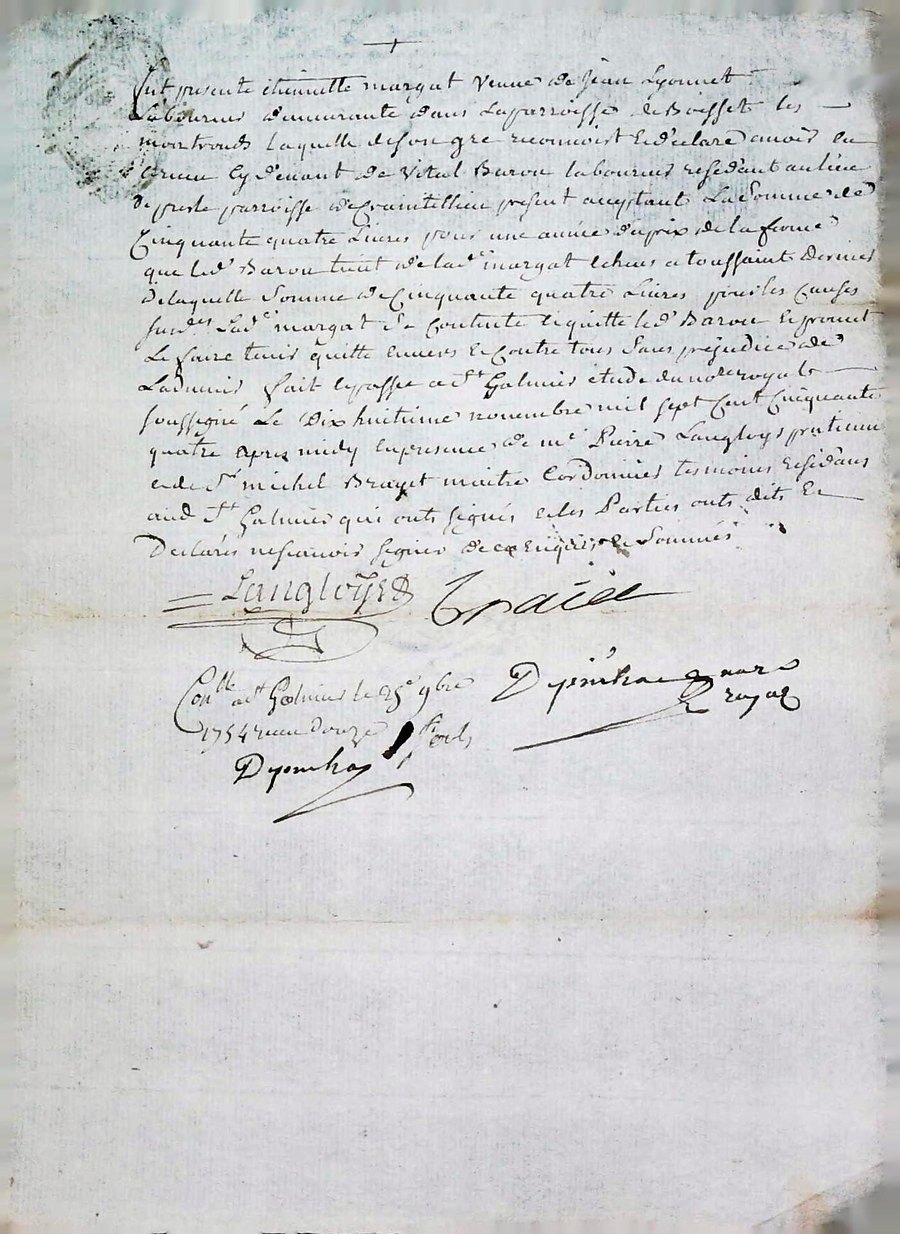 fut presente etiennette margat Veuve de Jean Lyonnet
Laboureur demeurante dans La parroisse de Boisset les
montrond Laquelle de son gre reconnoist Et declare avoir eu
Et receu Cy devant de Vital Barou laboureur residant au lieu
parroisse de Chambellieu present acceptant La Somme de
Cinquante quatre Livres pour une année du prix de la ferme
que led. Barou tient de lad. margat Echeus a toussaint dernier
De laquelle Somme de Cinquante quatre Livres pour les Causes
susdes Lade margat Se Contente et quitte led. Barou Et promet
Le faire tenir quitte envers et Contre tous Sans prejudice de
Ladvenir fait et passé a St Galmier étude du nore royal
soussigné Le Dix huitième novembre mil sept Cent Cinquante
quatre apres midy En presence de me Pierre Langloys praticien
et de Sr michel Brayet maitre Cordonnier tesmoins residans
aud. St Galmier qui onts signés et les Parties onts dits Et
Declarés ne scavoir signer de ce Enquises et Sommés
Langloys
Con.lle a St Galmier le 25e 9bre
1754 receu Douze sols
royal